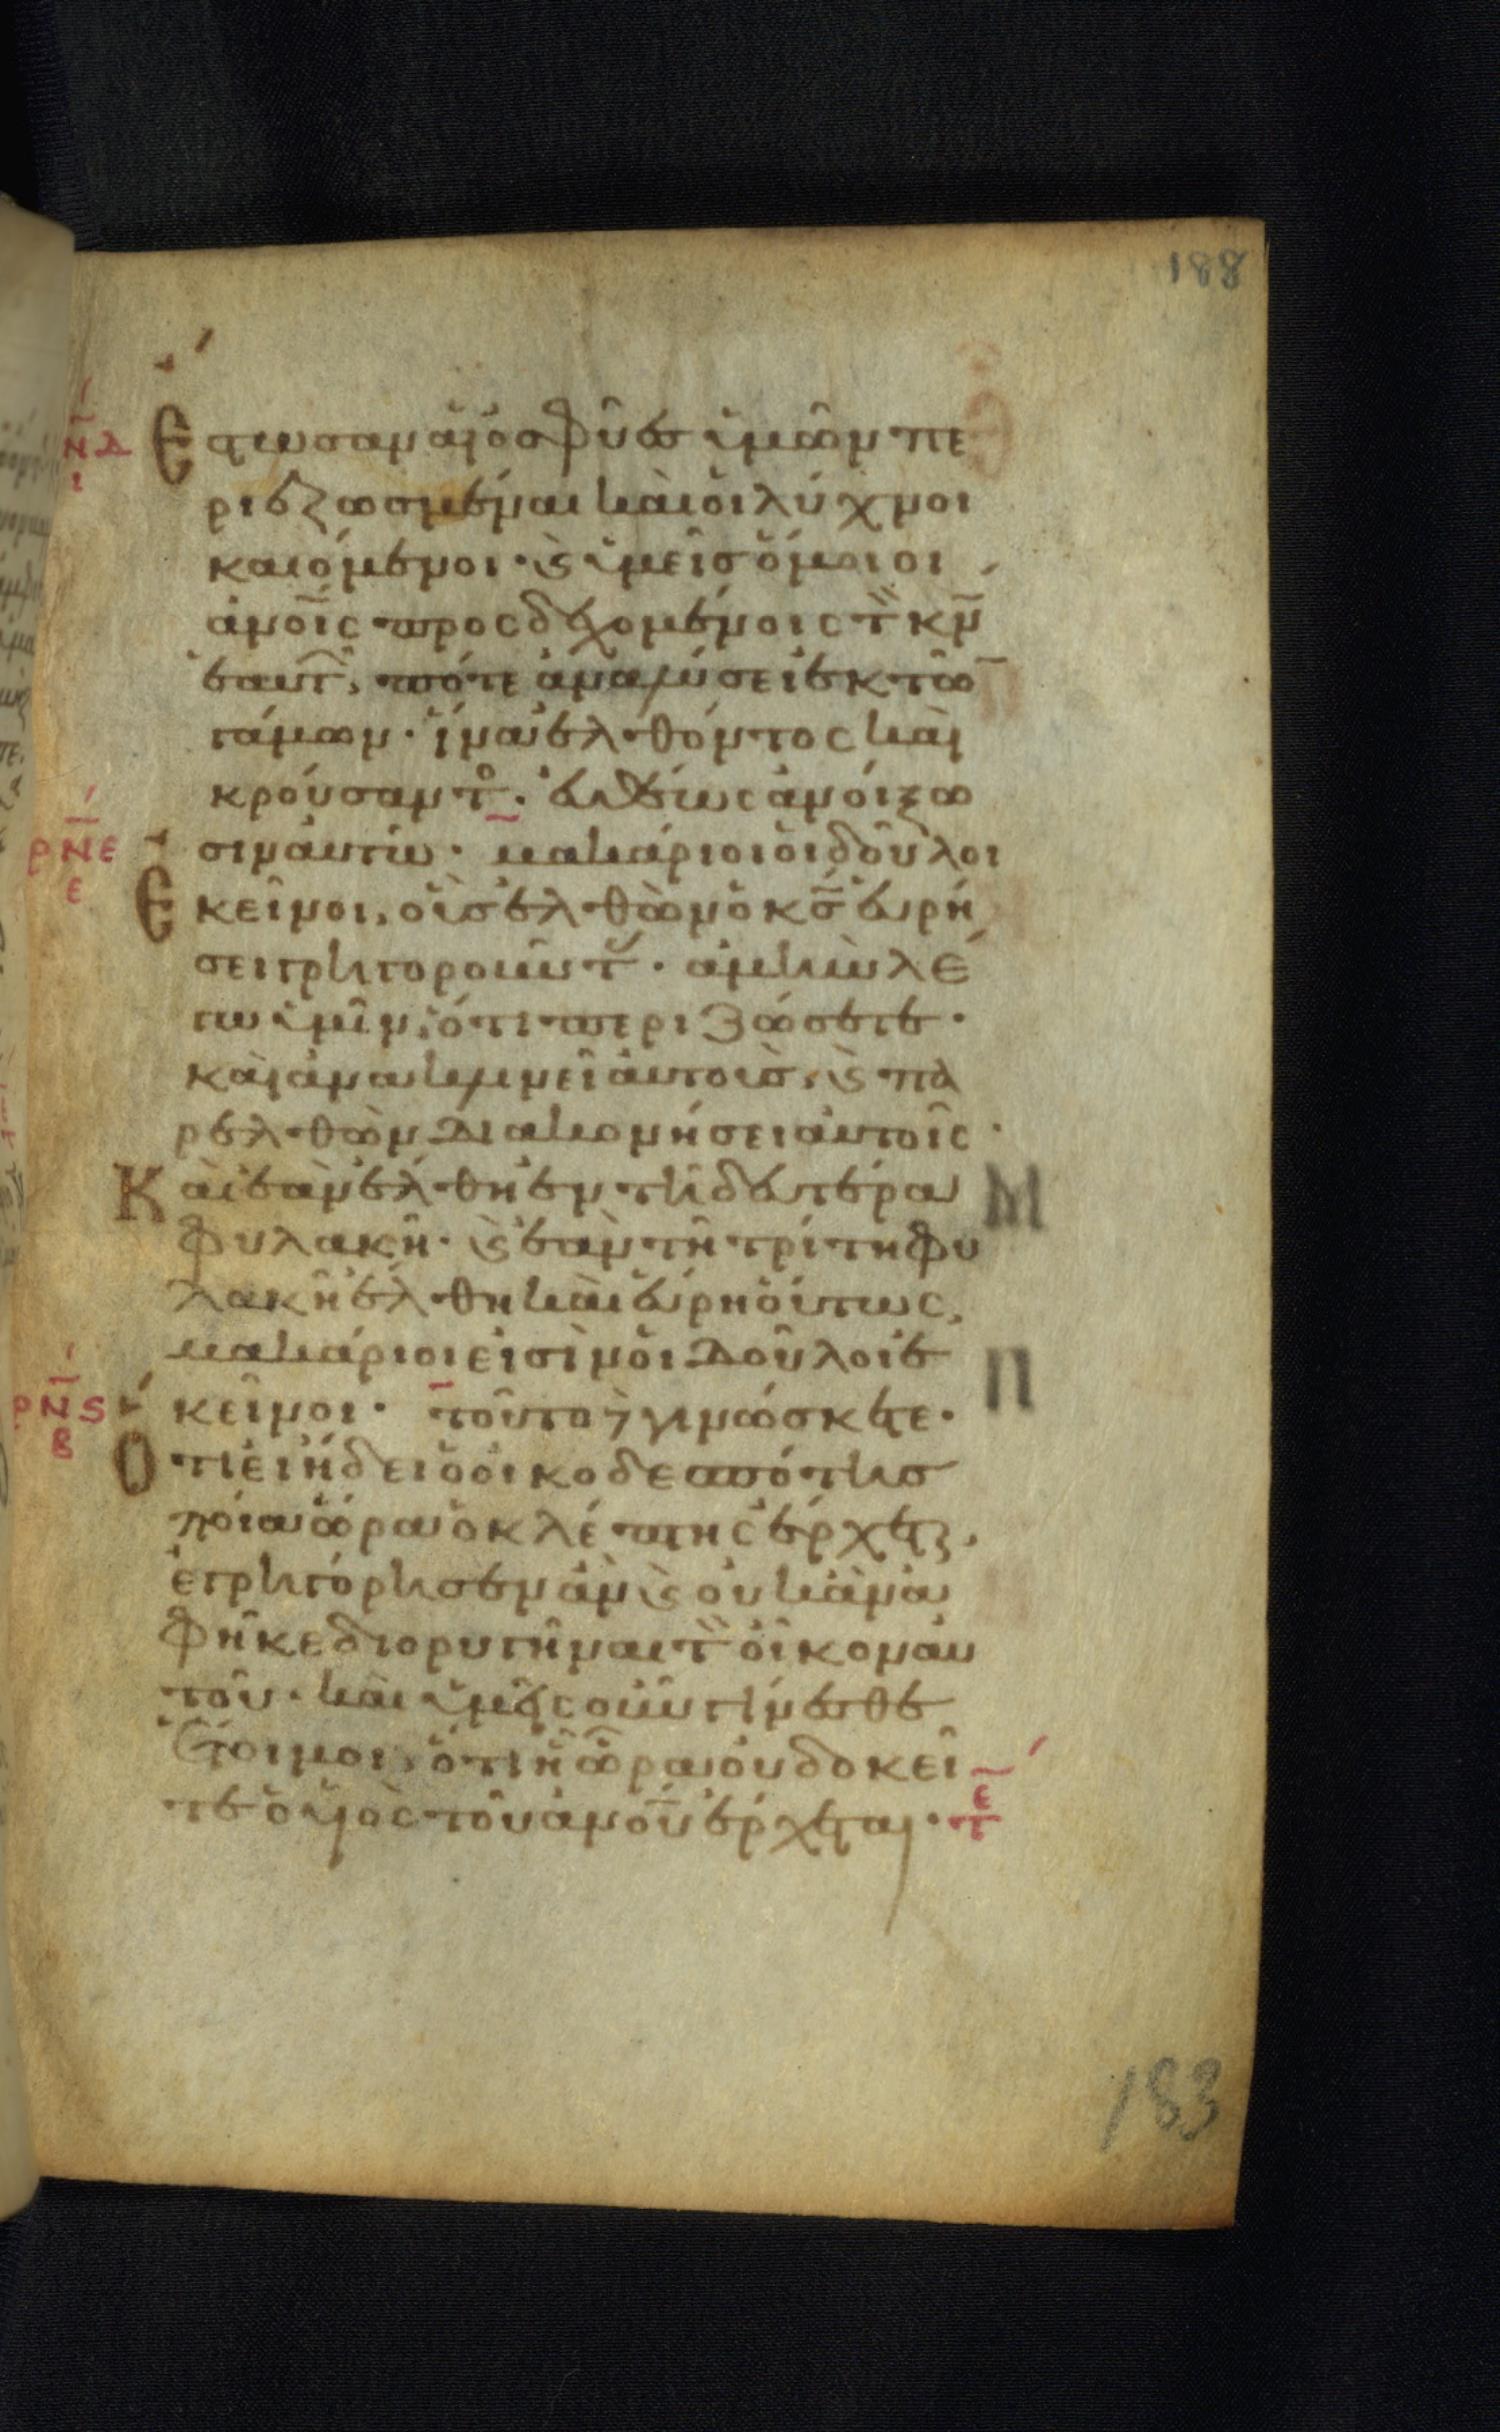 188
ΝΔ
Ι
Ἔστωσαν αἱ ὀσφύες ὑμῶν πε
ριεζωσμέναι καὶ οἱ λύχνοι
καιόμενοι· ϗ ὑμεῖς ὅμοιοι
ἀνο̅ι̅ς προσδεχομένοις τὸν κν̅
ἑαυτῶν, πότε ἀναλύσει ἐκ τῶ
γάμων· ἵνα ἐλθόντος καὶ
κρούσαντος· εὐθέως ἀνοίξω
σιν αὐτῶ· μακάριοι οἱ δοῦλοι
ΡΝΕ
Ε
Ἐκεῖνοι, οὓς ἐλθὼν ὁ κς̅ εὑρή
σει γρηγοροῦντας· ἀμὴν λέ
γω ὑμῖν, ὅτι περιζώσεται·
καὶ ἀνακλινεῖ αὐτοὺς, ϗ πα
ρελθὼν διακονήσει αὐτοῖς·
Καὶ ἐὰν ἔλθη ἐν τῆ δευτέρα
φυλακῆ· ϗ ἐὰν τῆ τρίτη φυ
λακῆ ἔλθη καὶ εὕρη οὕτως,
μακάριοι εἰσὶν οἱ δοῦλοι ἐ
κεῖνοι· τοῦτο δὲ γινώσκετε·
ΡΝϚ
Β
Ὅτι εἰ ἤδει ὁ οἰκοδεσπότης
ποία ὥρα ὁ κλέπτης ἔρχεται,
ἐγρηγόρησεν ἂν ϗ οὐκ ἂν ἀ
φῆκε διορυγῆναι τὸν οἶκον αὐ
τοῦ· καὶ ὑμεῖς οὖν γίνεσθε
ἕτοιμοι, ὅτι ἧ ὥρα οὐ δοκεῖ
τε ὁ υἱὸς τοῦ ἀνο̅υ̅ ἔρχεται· τε
183